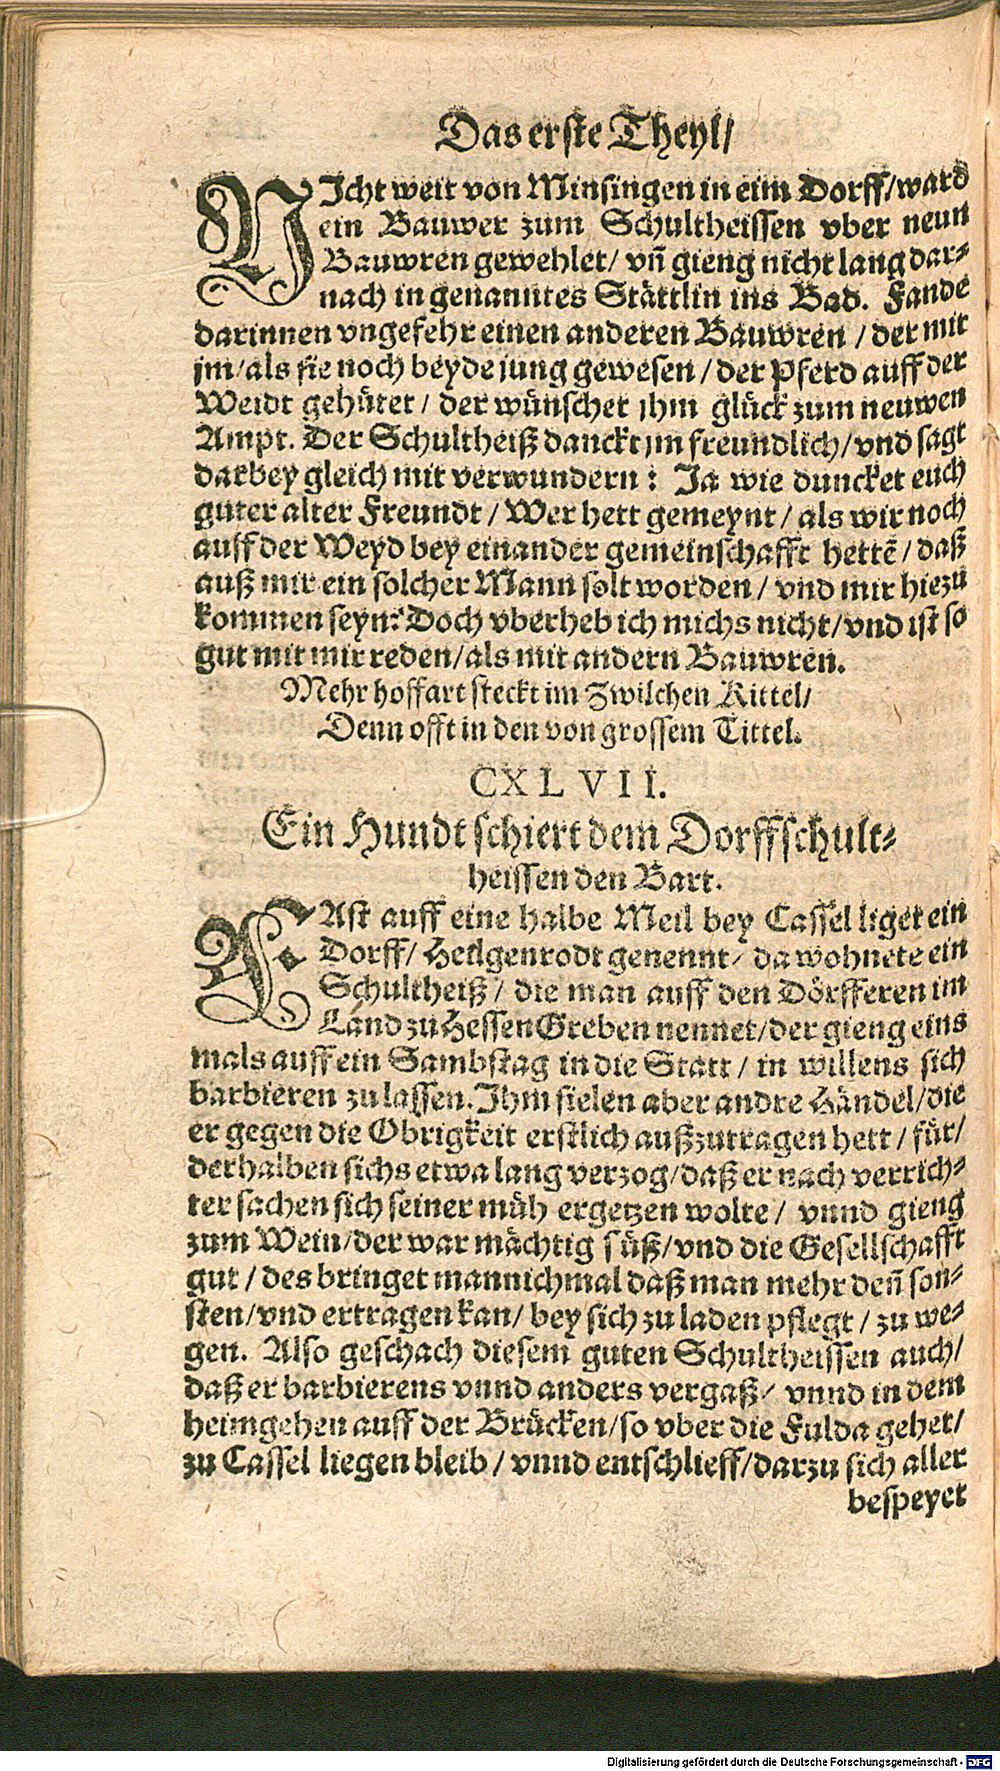 Das erste Theyl/
NIcht weit von Minsingen in eim Dorff/ward
ein Bauwer zum Schultheissen vber neun
Bauwren gewehlet/ vñ gieng nicht lang dar-
nach in genanntes Stättlin ins Bad. Fande
darinnen vngefehr einen anderen Bauwren / der mit
jm/als sie noch beyde jung gewesen / der Pferd auff der
Weidt gehütet / der wünschet ihm glück zum neuwen
Ampt. Der Schultheiß danckt jm freundlich/vnd sagt
darbey gleich mit verwundern: Ja wie duncket euch
guter alter Freundt / Wer hett gemeynt / als wir noch
auff der Weyd bey einander gemeinschafft hettẽ / daß
auß mir ein solcher Mann solt worden / vnd mir hiezu
kommen seyn? Doch vberheb ich michs nicht/vnd ist so
gut mit mir reden/als mit andern Bauwren.
Mehr hoffart steckt im Zwilchen Kittel/
Denn offt in den von grossem Tittel.
CXLVII.
Ein Hundt schiert dem Dorffschult-
heissen den Bart.
FAst auff eine halbe Meil bey Cassel liget ein
Dorff/ Heilgenrodt genennt/ da wohnete ein
Schultheiß / die man auff den Dörfferen im
Land zu Hessen Greben nennet/der gieng eins
mals auff ein Sambstag in die Statt / in willens sich
barbieren zu lassen. Ihm fielen aber andre Händel/die
er gegen die Obrigkeit erstlich außzutragen hett / für/
derhalben sichs etwa lang verzog/daß er nach verrich-
ter sachen sich seiner müh ergetzen wolte / vnnd gieng
zum Wein/der war mächtig süß/vnd die Gesellschafft
gut / des bringet mannichmal daß man mehr deñ son-
sten/vnd ertragen kan/ bey sich zu laden pflegt / zu we-
gen. Also geschach diesem guten Schultheissen auch/
daß er barbierens vnnd anders vergaß/ vnnd in dem
heimgehen auff der Brücken/so vber die Fulda gehet/
zu Cassel liegen bleib / vnnd entschlieff/darzu sich aller
bespeyet
Digitalisierung gefördert durch die Deutsche Forschungsgemeinschaft - DFG